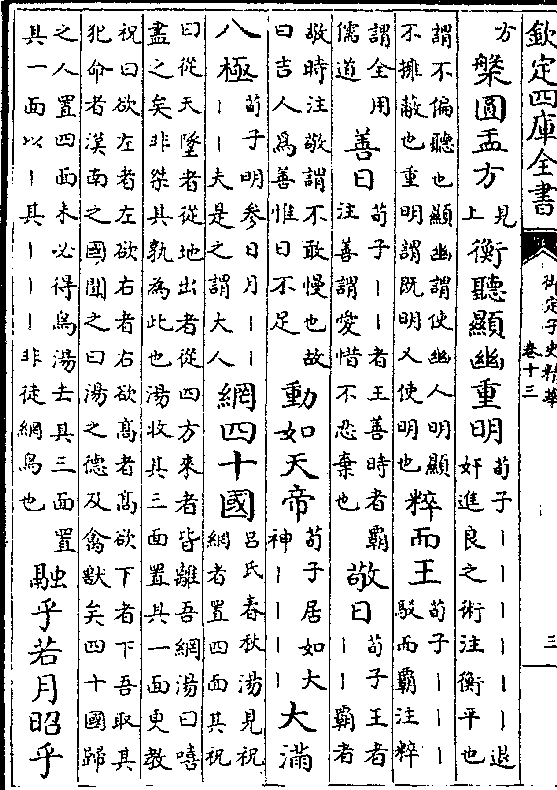 欽定四庫全書
御定子史精華
卷十三
三
方
槃圓盂方
見
上
衡聽顯幽重明
荀子｜｜｜｜｜｜退
奸進良之術注衡平也
謂不偏聽也顯幽謂使幽人明顯
不擁蔽也重明謂既明又使明也
粹而王
荀子｜｜｜
駁而霸注粹
謂全用
儒道
善日
荀子｜｜者王善時者霸
注善謂愛惜不忍棄也
敬日
荀子王者
｜｜霸者
敬時注敬謂不敢慢也故
曰吉人爲善惟日不足
動如天帝
荀子居如大
神｜｜｜｜
大滿
八極
荀子明參日月｜｜
｜｜夫是之謂大人
網四十國
呂氏春秋湯見祝
網者置四面其祝
曰從天墜者從地出者從四方來者皆離吾網湯曰嘻
盡之矣非桀其孰為此也湯收其三面置其一面更教
祝曰欲左者左欲右者右欲髙者髙欲下者下吾取其
犯命者漢南之國聞之曰湯之德及禽獸矣四十國歸
之人置四面未必得鳥湯去其三面置
其一面以｜其｜｜｜非徒網鳥也
融乎若月昭乎